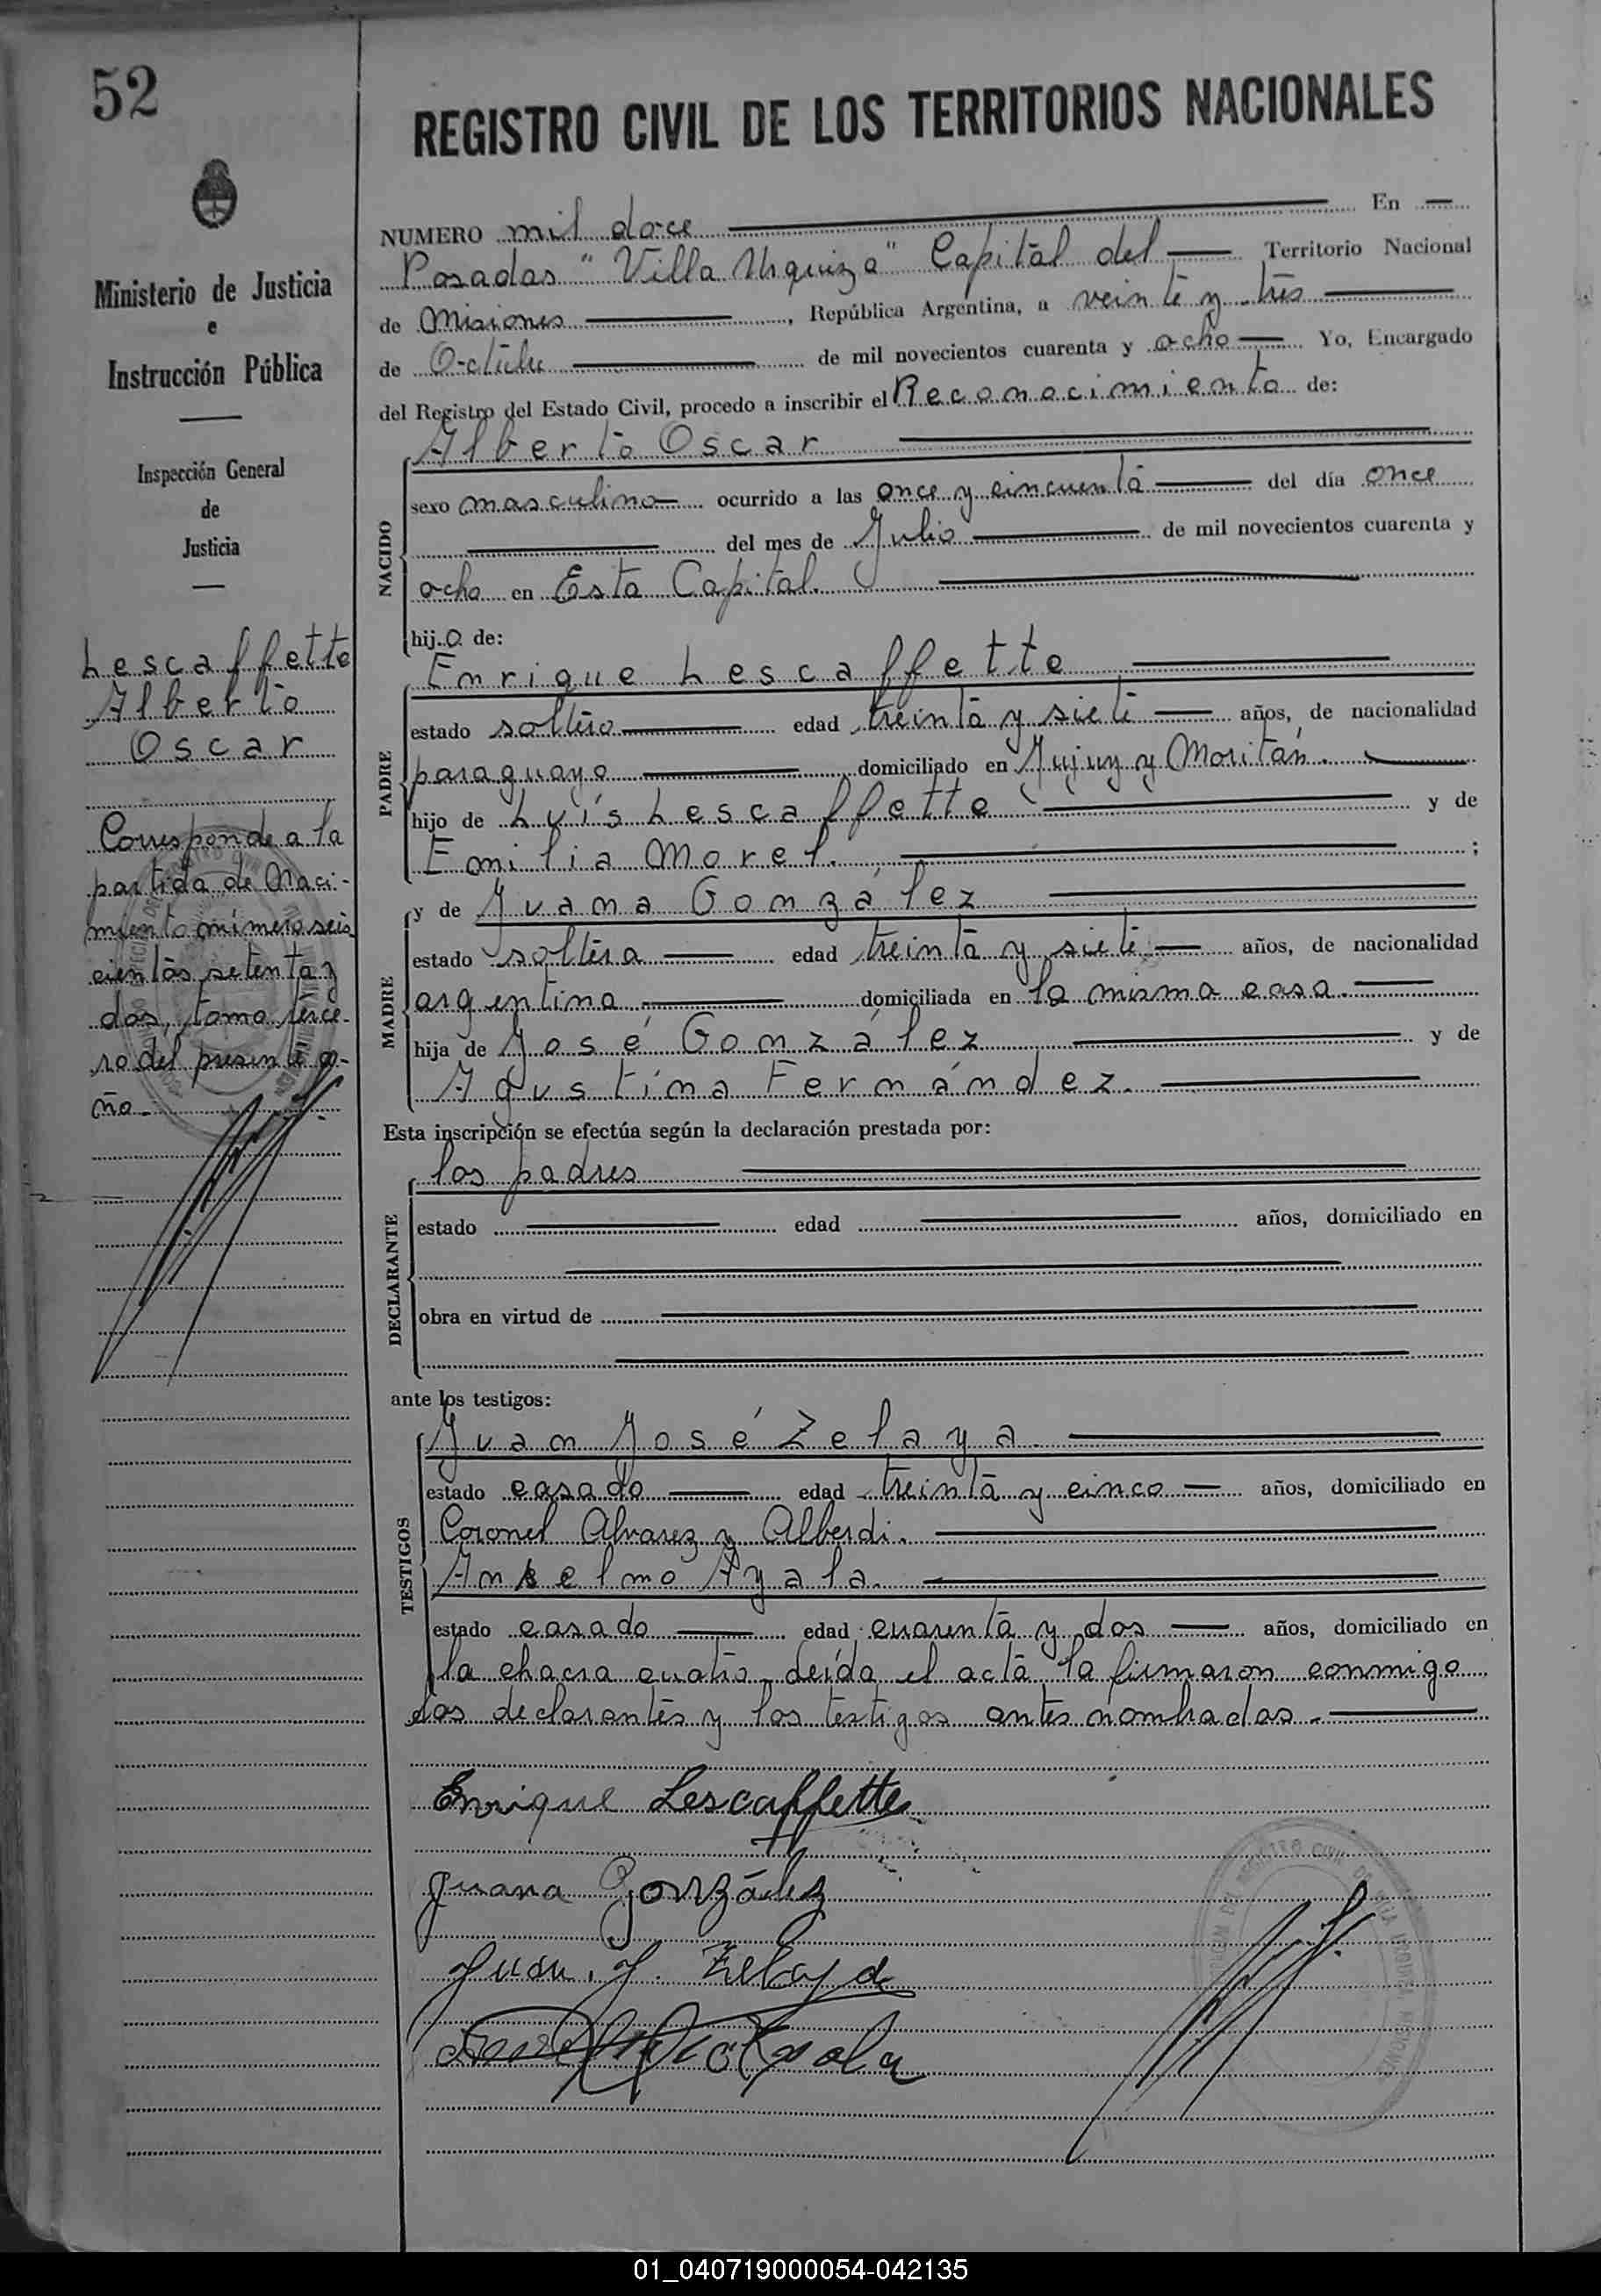 52
Ministerio de Justicia
e
Instrucción Pública
Inspección General
de
Justicia
Lescaffette
Alberto
Oscar
Corresponde a la
partida de Naci-
miento número seis
cientos setenta y
dos, tomo terce-
ro del presente a-
ño.
REGISTRO CIVIL DE LOS TERRITORIOS NACIONALES
NUMERO mil doce En
Posadas "Villa Urquiza" Capital del Territorio Nacional
de Misiones, República Argentina, a veinte y tres
de Octubre de mil novecientos cuarenta y ocho Yo, Encargado
del Registro del Estado Civil, procedo a inscribir el Reconocimiento de:
Alberto Oscar
NACIDO
sexo masculino ocurrido a las once y cincuenta del día once
del mes de Julio de mil novecientos cuarenta y
ocho en Esta Capital.
hijo de:
Enrique Lescaffette
PADRE
estado soltero edad treinta y siete años, de nacionalidad
paraguayo domiciliado en Jujuy y Moritán.
hijo de Luís Lescaffette y de
Emilia Morel. ;
y de Juana González
MADRE
estado soltera edad treinta y siete años, de nacionalidad
argentina domiciliada en la misma casa.
hija de José González y de
Agustina Fernández.
Esta inscripción se efectúa según la declaración prestada por:
los padres
DECLARANTE
estado edad años, domiciliado en
obra en virtud de
ante los testigos:
Juan José Zelaya.
TESTIGOS
estado casado edad treinta y cinco años, domiciliado en
Coronel Alvarez y Alberdi.
Anselmo Ayala.
estado casado edad cuarenta y dos años, domiciliado en
la chacra cuatro leída el acta la firmaron conmigo
los declarantes y los testigos antes nombrados.
Enrique Lescaffette
Juana González
Juan. J. Zelaya
01_040719000054-042135